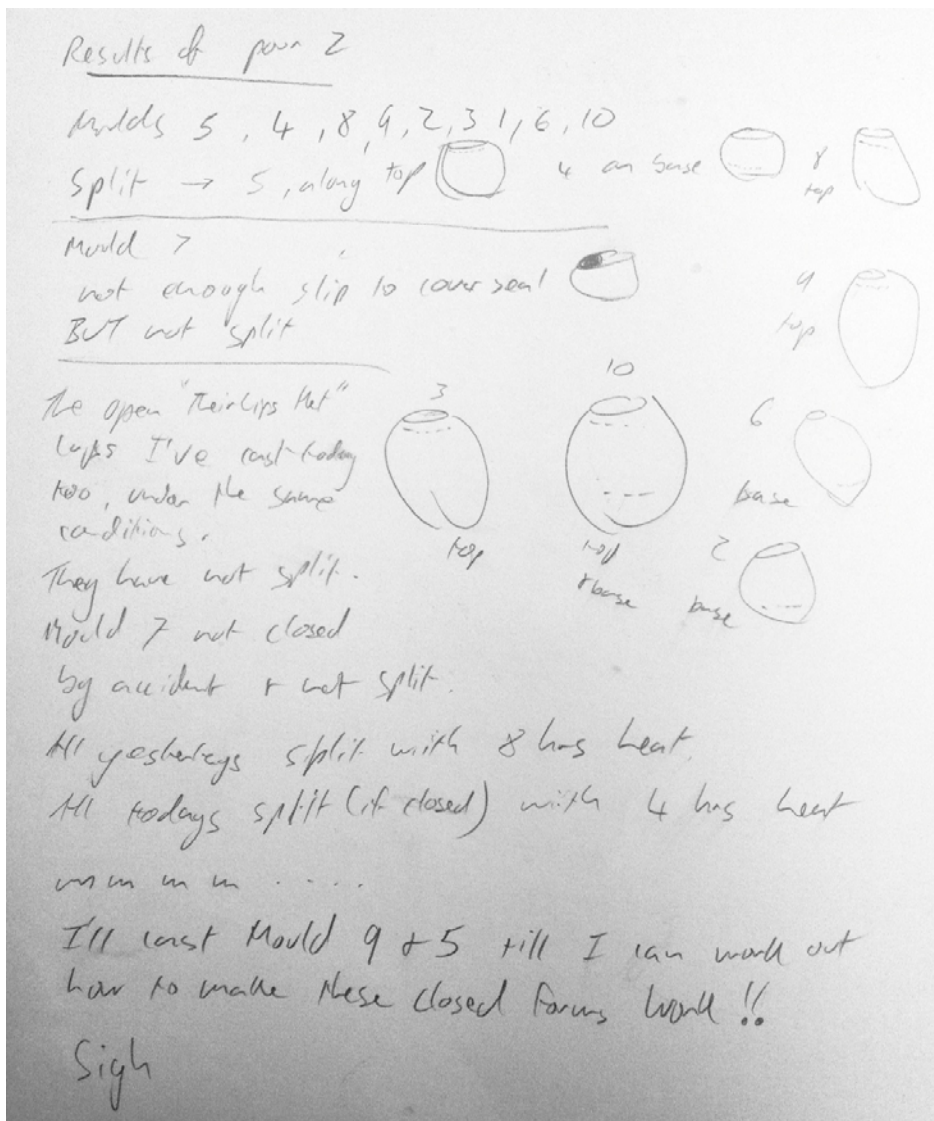 Results of pour 2
Molds 5, 4, 8, 9, 2, 3 1, 6, 10
Split → 5, along top
4 on base
8
top
Mould 7
not enough slip to cover seal
BUT not split
9
top
The open "Their Lips Met"
cups I've cast today
too, under the same
conditions.
They have not split.
Mould 7 not closed
by accident + not split.
3
top
10
top
& base
6
base
2
base
All yesterdays split with 8 hrs heat.
All todays split (if closed) with 4 hrs heat
mm m m . . . . .
I'll cast Mould 9 + 5 till I can work out
how to make these closed forms work!!
Sigh